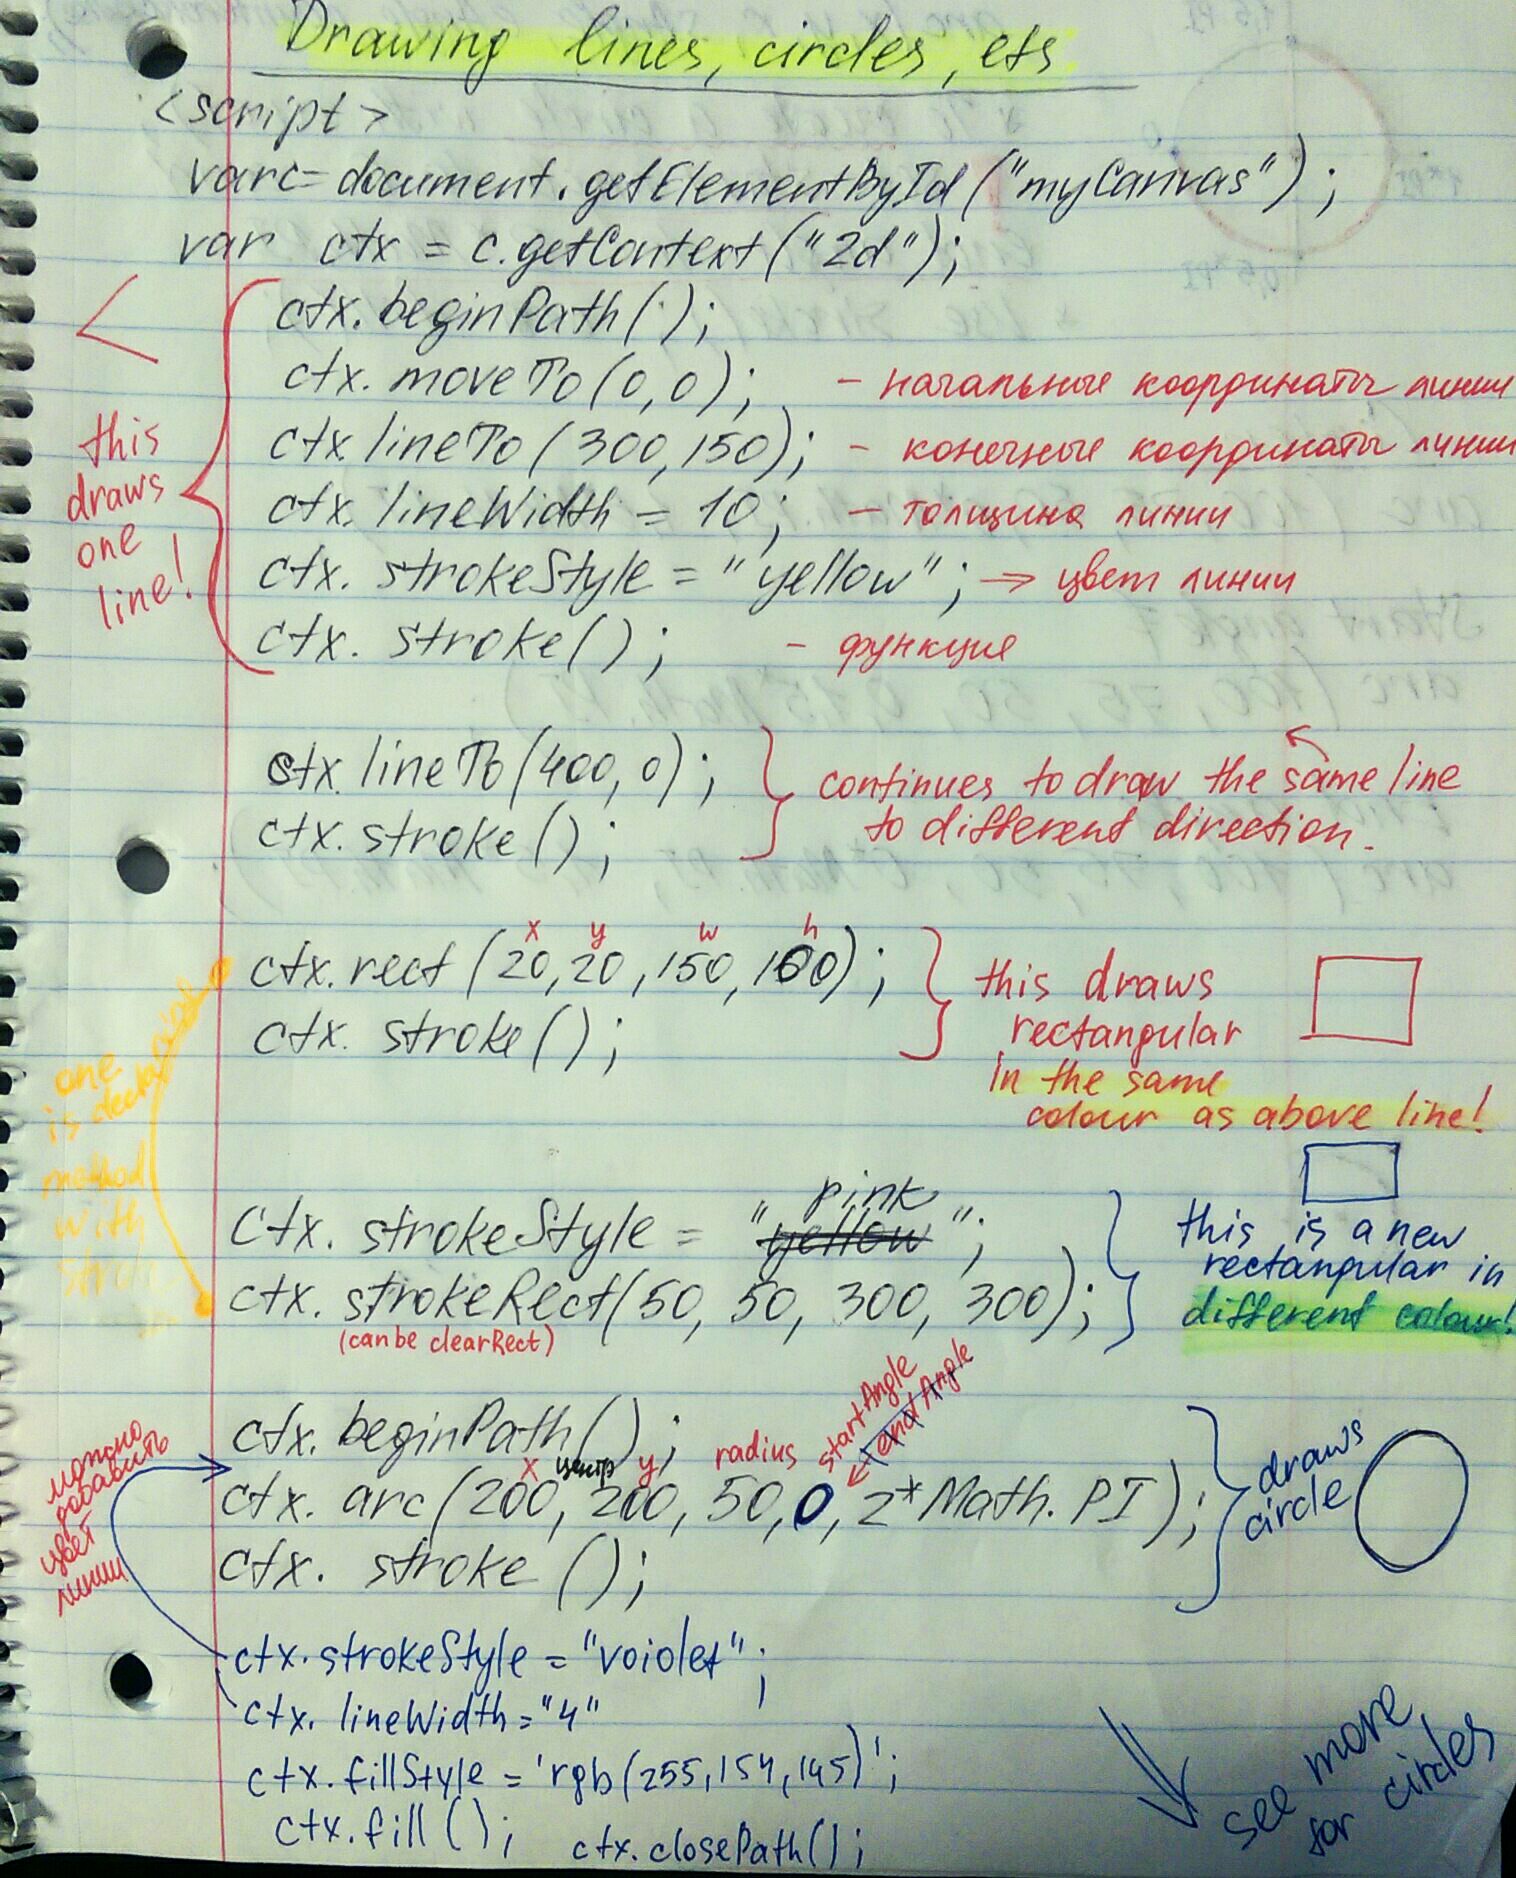 Drawing lines, circles, ets
<script>
var c = document.getElementById("myCanvas");
var ctx = c.getContext("2d");
ctx.beginPath();
ctx.moveTo(0,0); - начальные координаты линии
ctx.lineTo(300,150); - конечные координаты линии
ctx.lineWidth = 10; - толщина линии
ctx.strokeStyle = "yellow"; → цвет линии
ctx.stroke(); - функция
this
draws
one
line!
ctx.lineTo(400,0);
ctx.stroke();
continues to draw the same line
to different direction.
x y w h
ctx.rect(20,20,150,100);
ctx.stroke();
this draws
rectangular
in the same
colour as above line!
one
is
method
with
pink
ctx.strokeStyle = "yellow";
ctx.strokeRect(50, 50, 300, 300);
(can be clearRect)
this is a new
rectangular in
different colour!
ctx.beginPath();
x центр y radius startAngle endAngle
ctx.arc(200, 200, 50, 0, 2*Math.PI);
ctx.stroke();
draws
circle
можно
добавить
цвет
линии
ctx.strokeStyle = "voiolet";
ctx.lineWidth = "4"
ctx.fillStyle = 'rgb(255,154,145)';
ctx.fill(); ctx.closePath();
see more
for circles